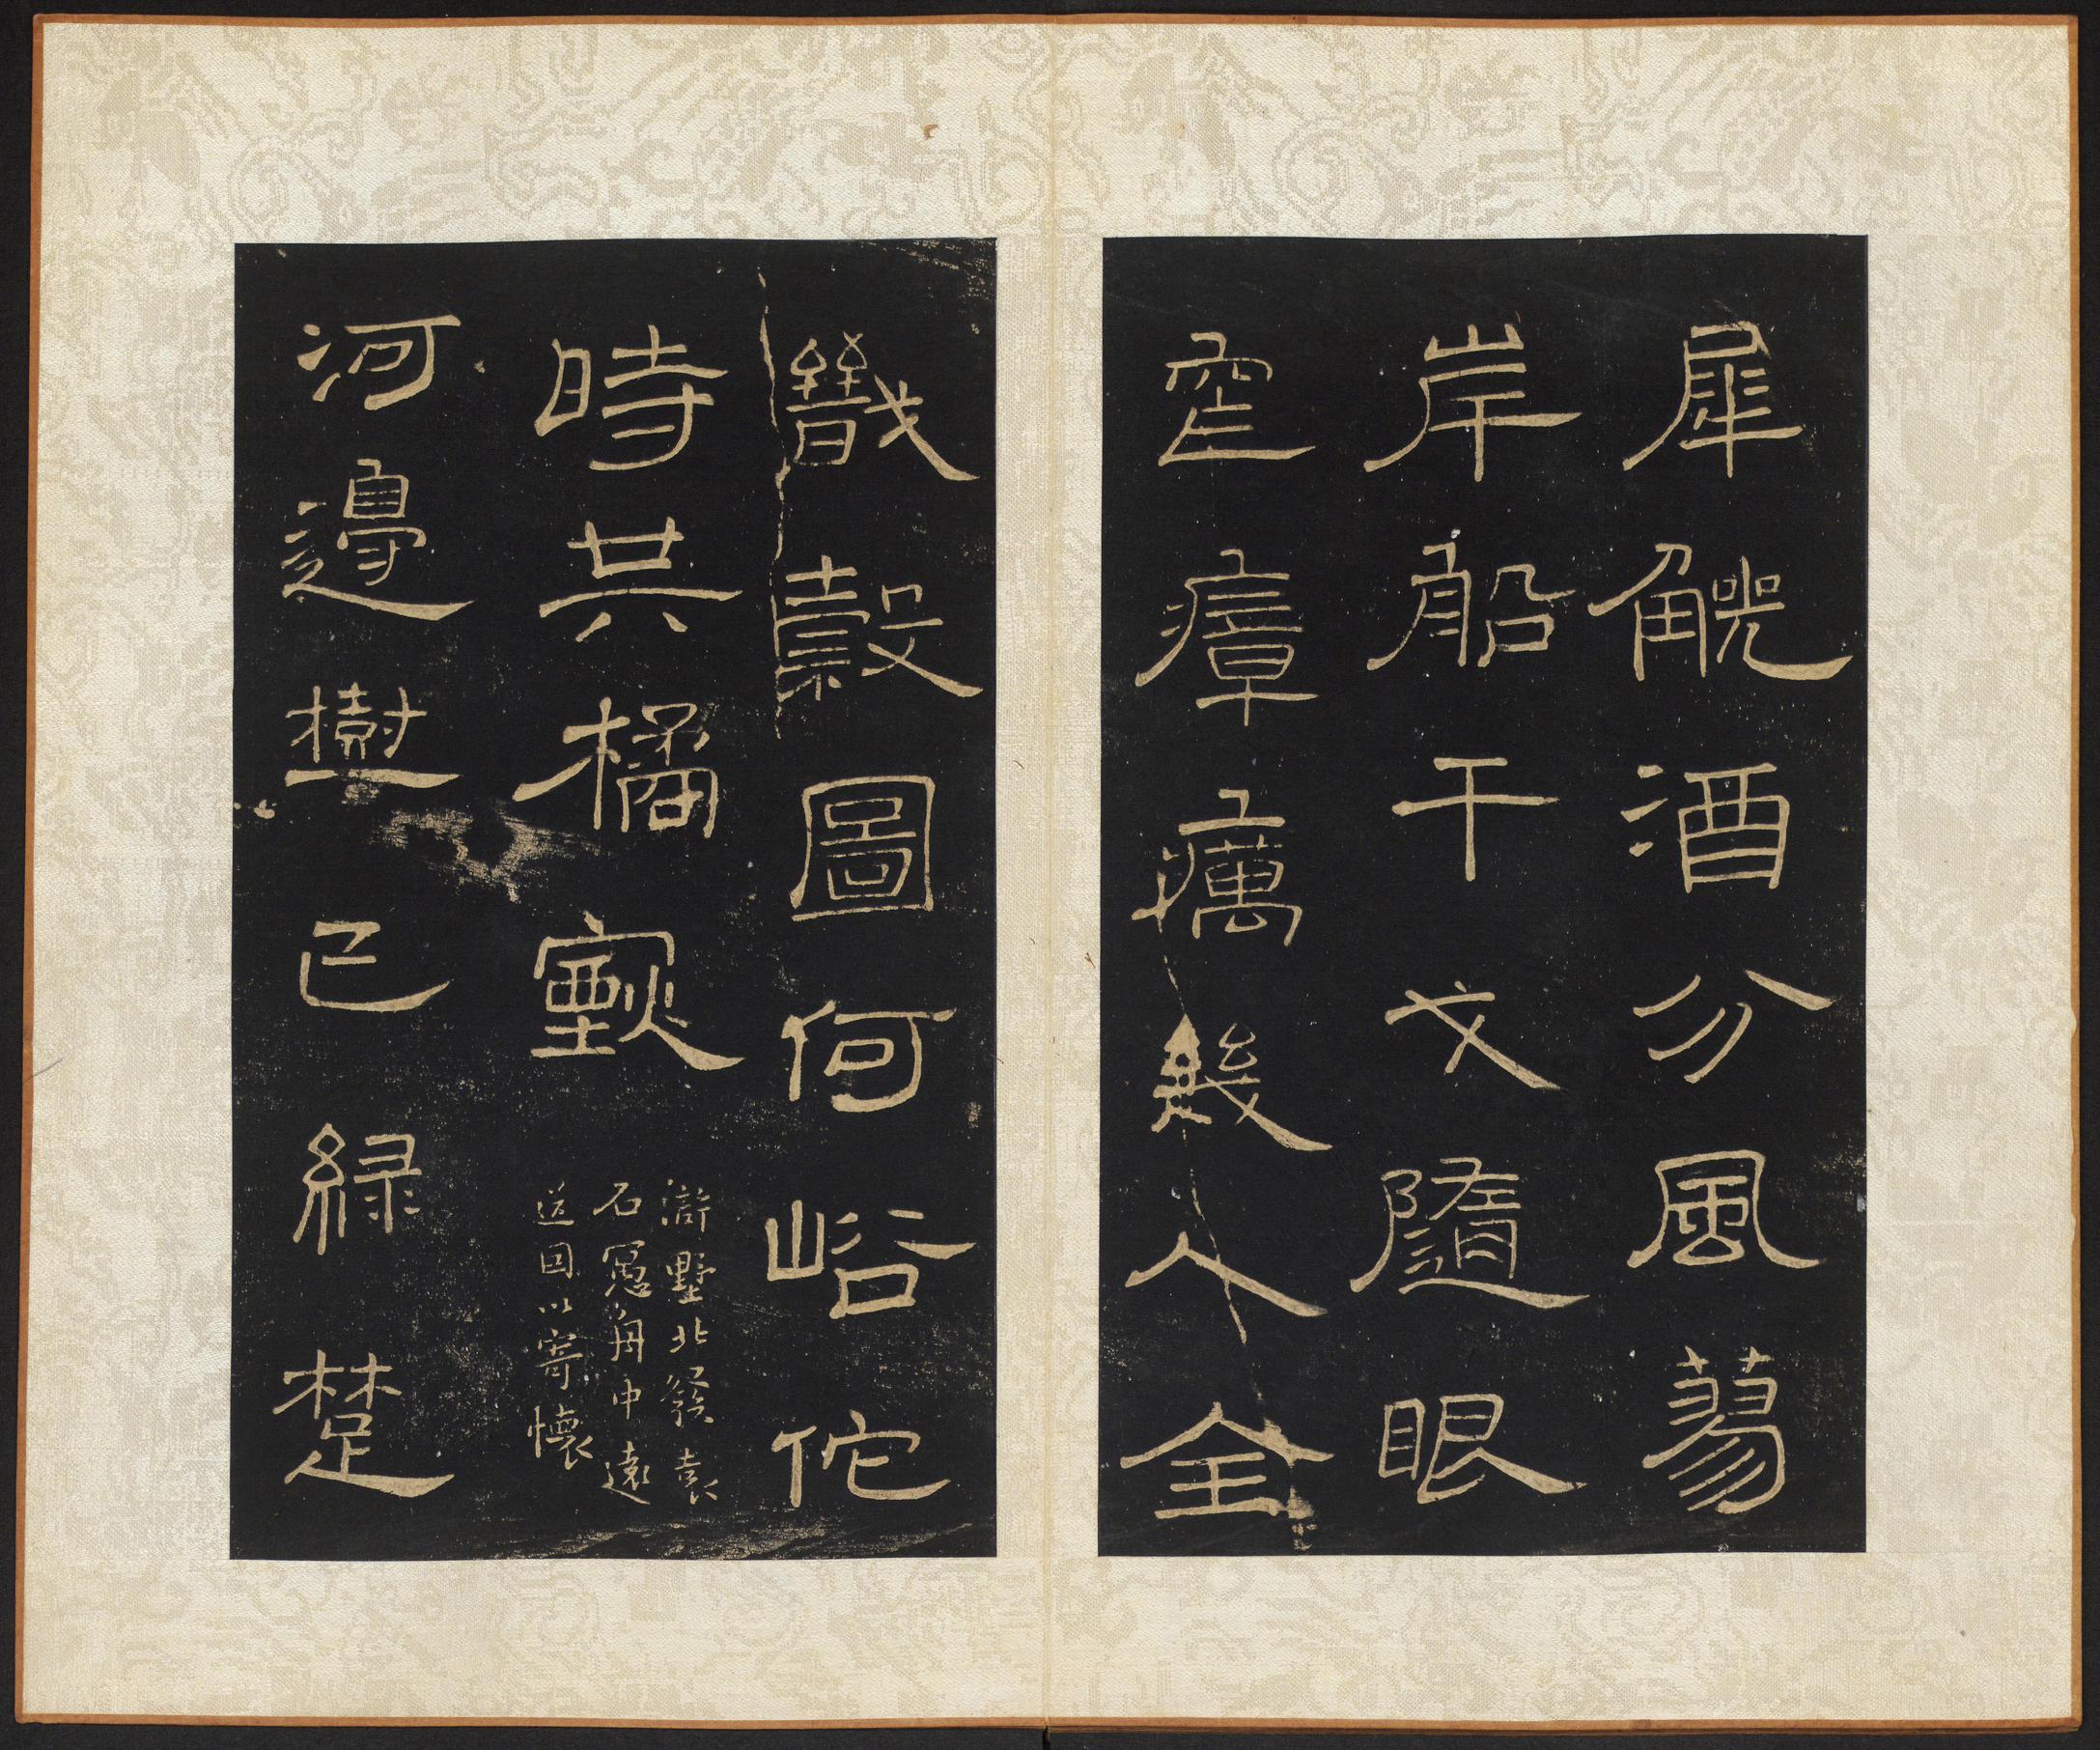 犀觥酒分風蕩
岸船干戈隨眼
瘴癘幾人全
穀圖何峪佗
時共橘
滸墅北發袁
石舟中遠
送因以寄懷
河邊樹已綠楚